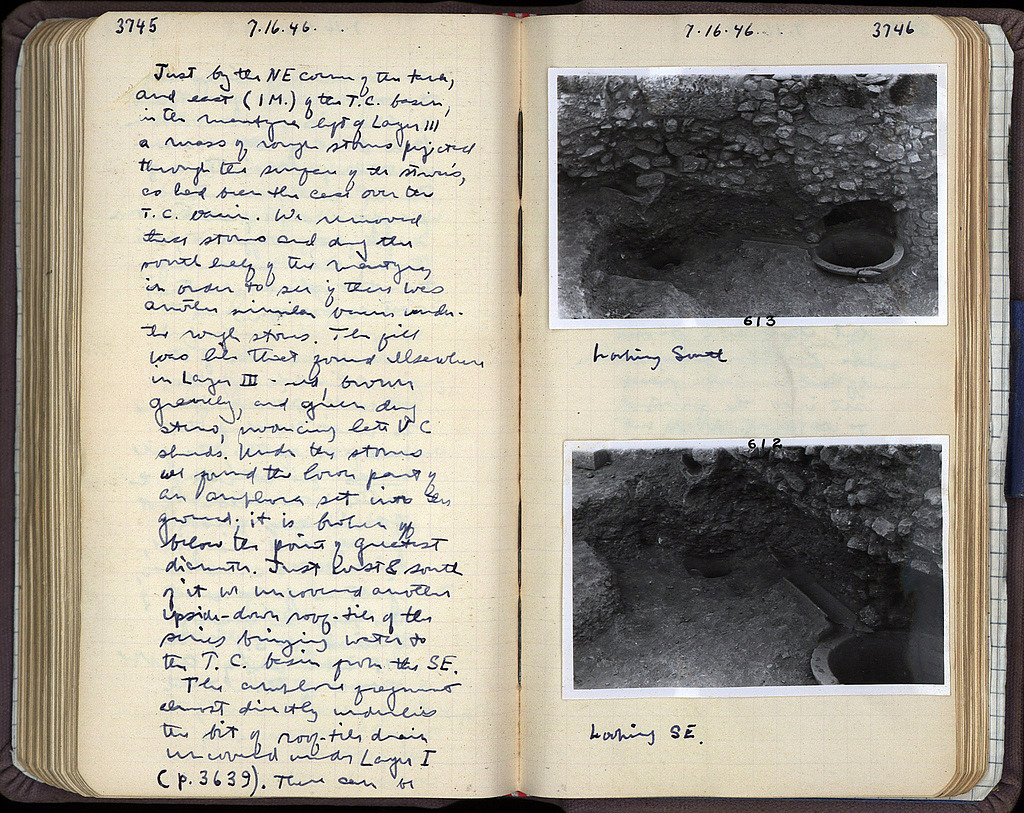 3745 7.16.46.
Just by the NE corner of the tank,
and east (1 M.) of the T.C. basin,
in the left of Layer III
a mass of rough stones projected
through the surface of the
as had been the case over the
T.C. basin. We removed
these stones and dug the
south half of the
in order to see if there was
another similar basin under
the rough stones. The fill
was like that found elsewhere
in Layer III - red, brown
gravelly, and green
producing late V C
sherds. Under the stones
we found the lower part of
an amphora set into the
ground; it is broken off
below the point of greatest
diameter. Just east & south
of it we uncovered another
upside-down roof-tile of the
series bringing water to
the T.C. basin from the SE.
The amphora fragment
almost directly underlies
the bit of roof-tile drain
uncovered under Layer I
(p. 3639). There can be
7.16.46. 3746
613
Looking South
612
Looking SE.